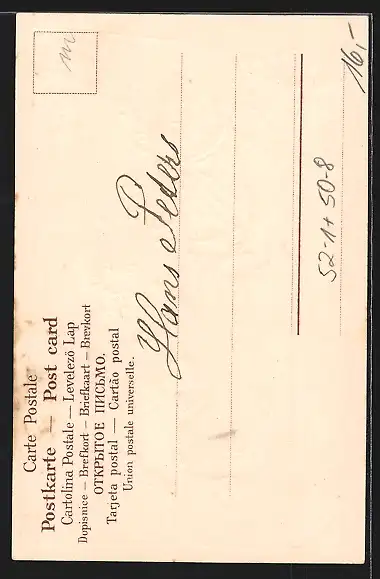 Carte Postale
Postkarte — Post card
Cartolina Postale — Levelező Lap
Dopisnice — Brefkort — Briefkaart — Brevkort
ОТКРЫТОЕ ПИСЬМО.
Tarjeta postal — Cartão postal
Union postale universelle.
m
Hans Peders
52-1+50-8
16,-